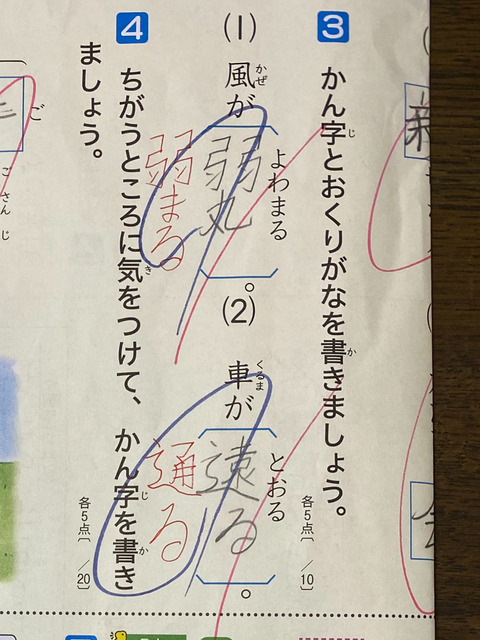 3 かん字とおくりがなを書きましょう。
じ
か
各5点〔 /10〕
(1) 風が〔弱丸〕。
かぜ
よわまる
弱まる
(2) 車が〔遠る〕。
くるま
とおる
通る
4 ちがうところに気をつけて、かん字を書き
き
じ
か
ましょう。
各5点〔 /20〕
ご
ごさんじ